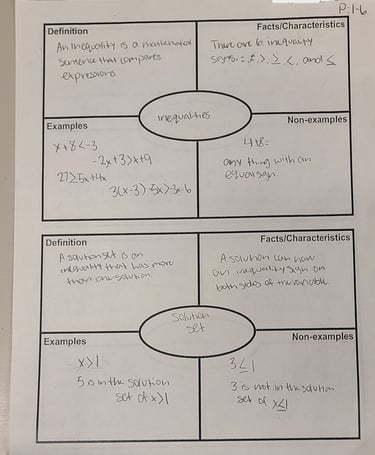 P. 1-6
Definition
An Inequality is a mathematical
sentence that compares
expressions.
Facts/Characteristics
There are 6 inequality
signs: =, ≠, >, ≥, <, and ≤
inequalities
Examples
x+8<-3
-2x+3>x+9
27≥5x+4x
3(x-3)-5x>-3x-6
Non-examples
4+8=
any thing with an
equal sign.
Definition
A solution set is an
inequality that has more
than one solution.
Facts/Characteristics
A solution can have
an inequality sign on
both sides of the variable.
solution
set
Examples
x>1
5 is in the solution
set of x>1
Non-examples
3≤1
3 is not in the solution
set of x≤1